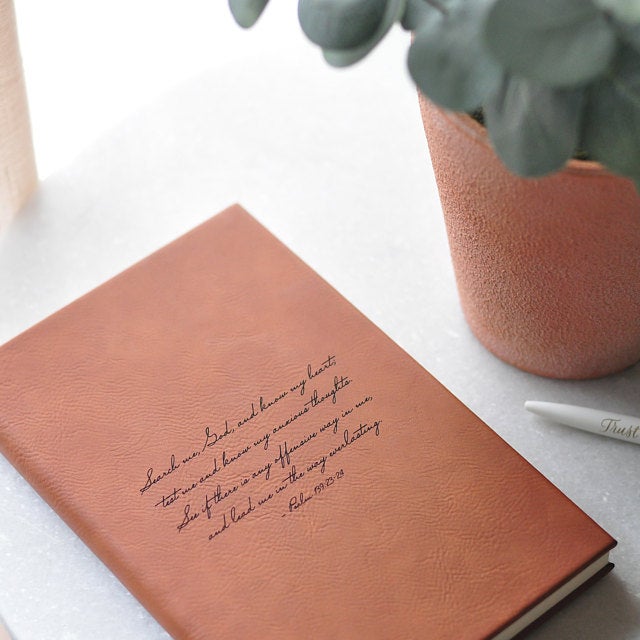 Search me, God, and know my heart;
test me and know my anxious thoughts.
See if there is any offensive way in me,
and lead me in the way everlasting.
- Psalm 139:23-24
Trust